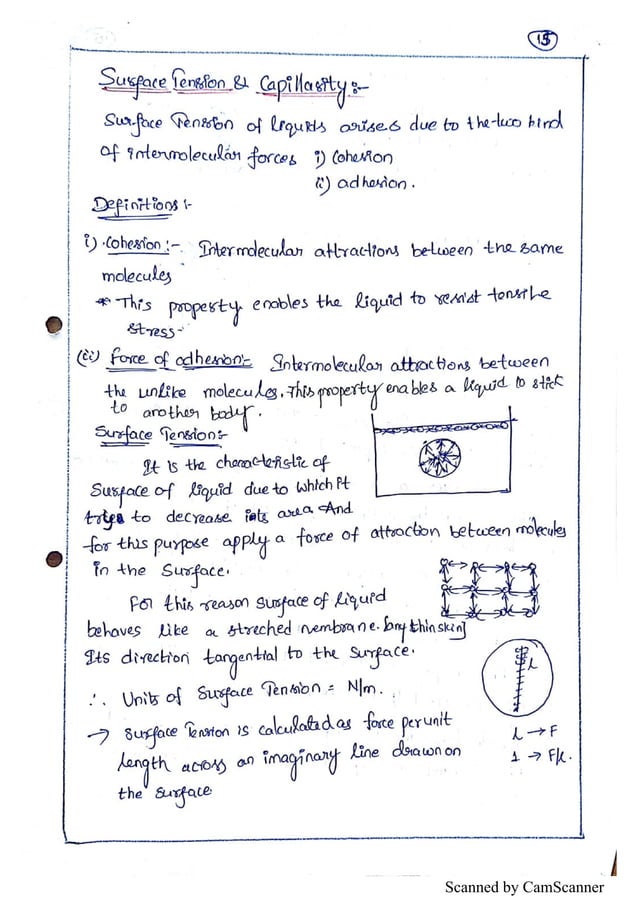 15
Surface Tension & Capillarity :-
Surface Tension of liquids arises due to the two kind
of intermolecular forces i) Cohesion
ii) adhesion.
Definitions :-
i) Cohesion :- Intermolecular attractions between the same
molecules
* This property enables the liquid to resist tensile
stress-
(ii) Force of adhesion:- Intermolecular attractions between
the unlike molecules. This property enables a liquid to stick
to another body.
Surface Tension:-
It is the characteristic of
Surface of liquid due to which it
tries to decrease its area And
for this purpose apply a force of attraction between molecules
in the Surface.
For this reason Surface of liquid
behaves like a streched membrane. [any thin skin]
Its direction tangential to the surface.
∴ Units of Surface Tension = N/m.
→ Surface Tension is calculated as force per unit
length across an imaginary line drawn on
the surface
L
L → F
1 → F/L.
Scanned by CamScanner